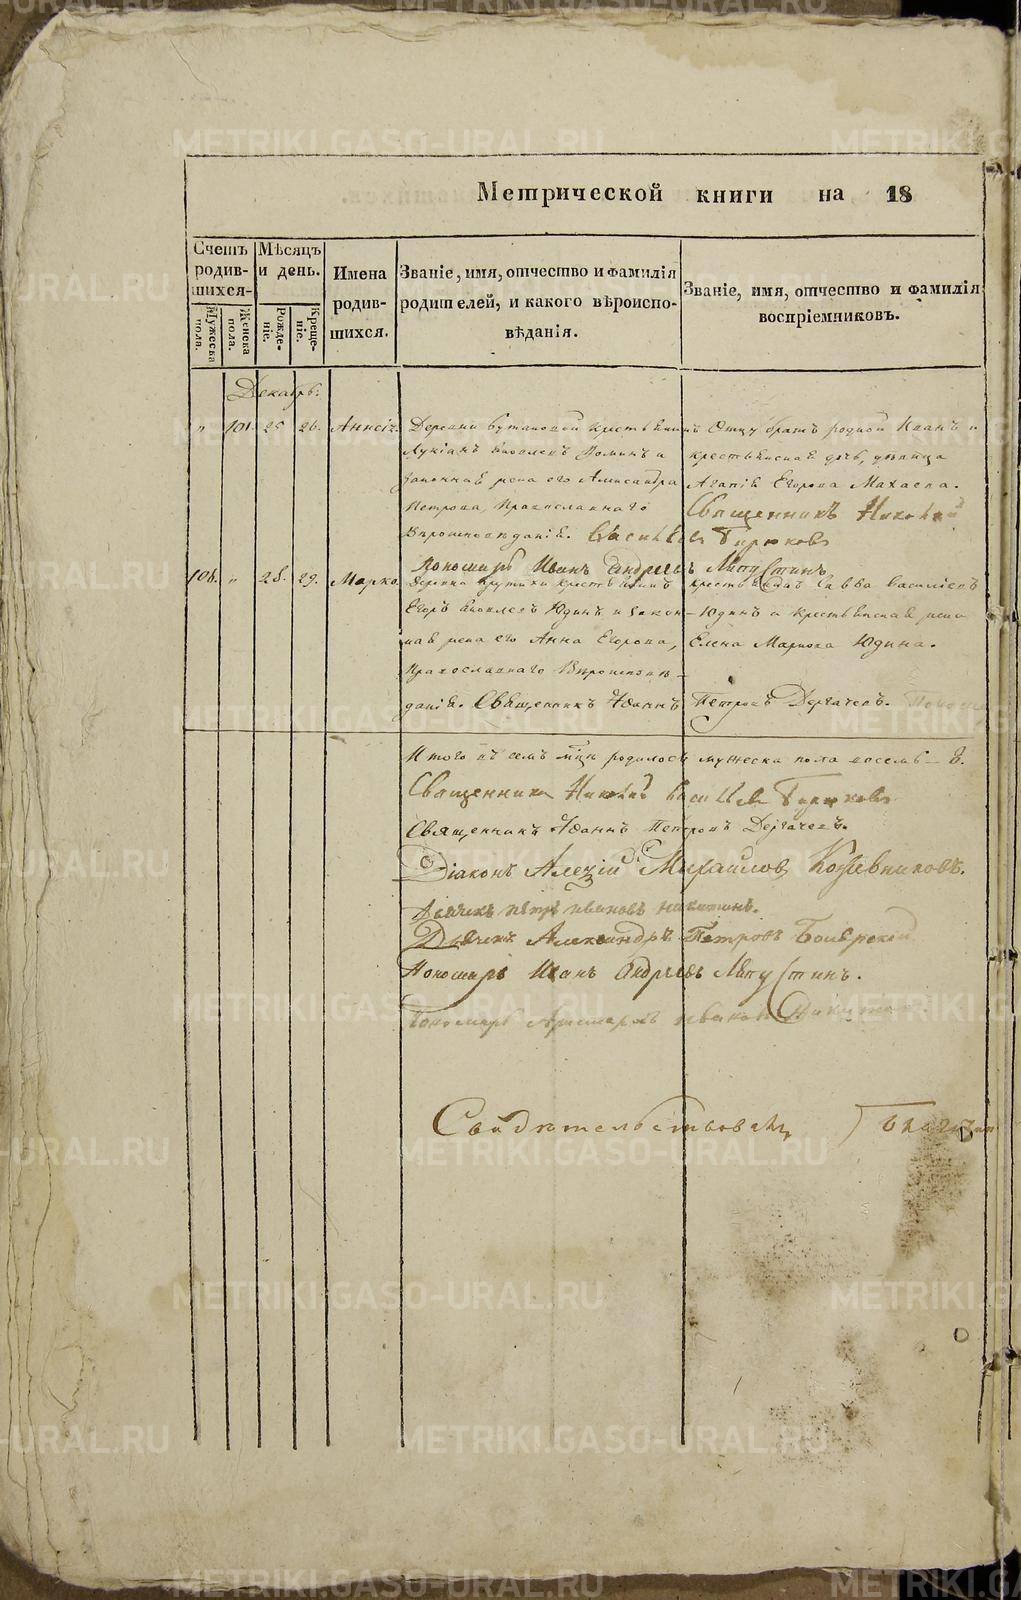 METRIKI.GASO-URAL.RU
Метрической книги на 18
Счетъ родив-шихся.
Мужеска пола.
Женска пола.
Мѣсяцъ и день.
Рожде-ніе.
Креще-ніе.
Имена родив-шихся.
Званіе, имя, отчество и фамилія родителей, и какого вѣроиспо-вѣданія.
Званіе, имя, отчество и фамилія воспріемниковъ.
Декабрь.
" 101. 25 26.
Деревни
Лукіанъ Яковлевъ и
законная жена его Александра
Петрова, Православнаго
Вѣроисповѣданія. Васильевъ Бирюковъ
Отцу братъ родной Иванъ и
крестьянская дочь, дѣвица
Агапія Егорова Махаева.
Священникъ Николай
Пономарь Иванъ Андреевъ
106. " 28. 29. Марко.
Деревни Крутихи крестьянинъ
Егоръ Яковлевъ Юдинъ и закон-
ная жена его Анна Егорова,
Православнаго Вѣроисповѣ-
данія. Священникъ Іоаннъ Петровъ Дергачевъ.
крестьянинъ Савва Василіевъ
Юдинъ и крестьянская жена
Елена Маркова Юдина.
Итого въ семъ мцѣ родилось мужеска пола восемь – 8.
Священникъ Николай Васильевъ Бирюковъ
Священникъ Іоаннъ Петровъ Дергачевъ.
Діаконъ Алексій Михайловъ Кожевниковъ.
Дьячекъ Петръ Ивановъ Никитинъ.
Дьячекъ Александръ Петровъ
Пономарь Иванъ Андреевъ
Пономарь Аристархъ Ивановъ Никитинъ
Свидѣтельствовалъ